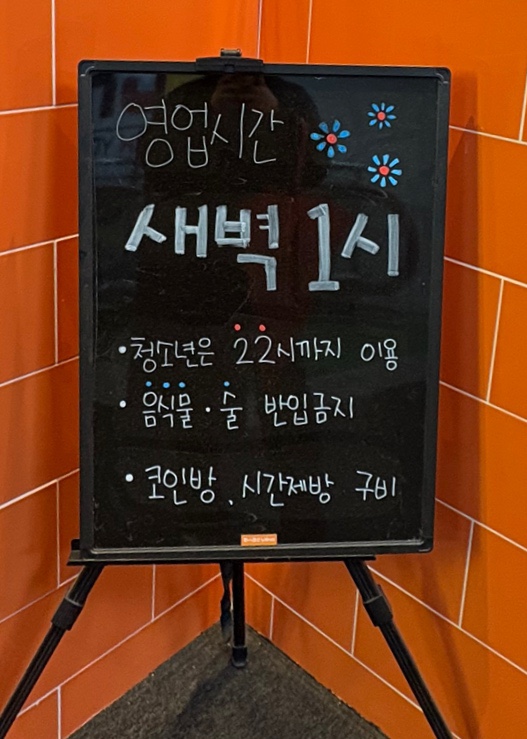 영업시간
새벽 1시
• 청소년은 22시까지 이용
• 음식물 · 술 반입금지
• 코인방, 시간제방 구비